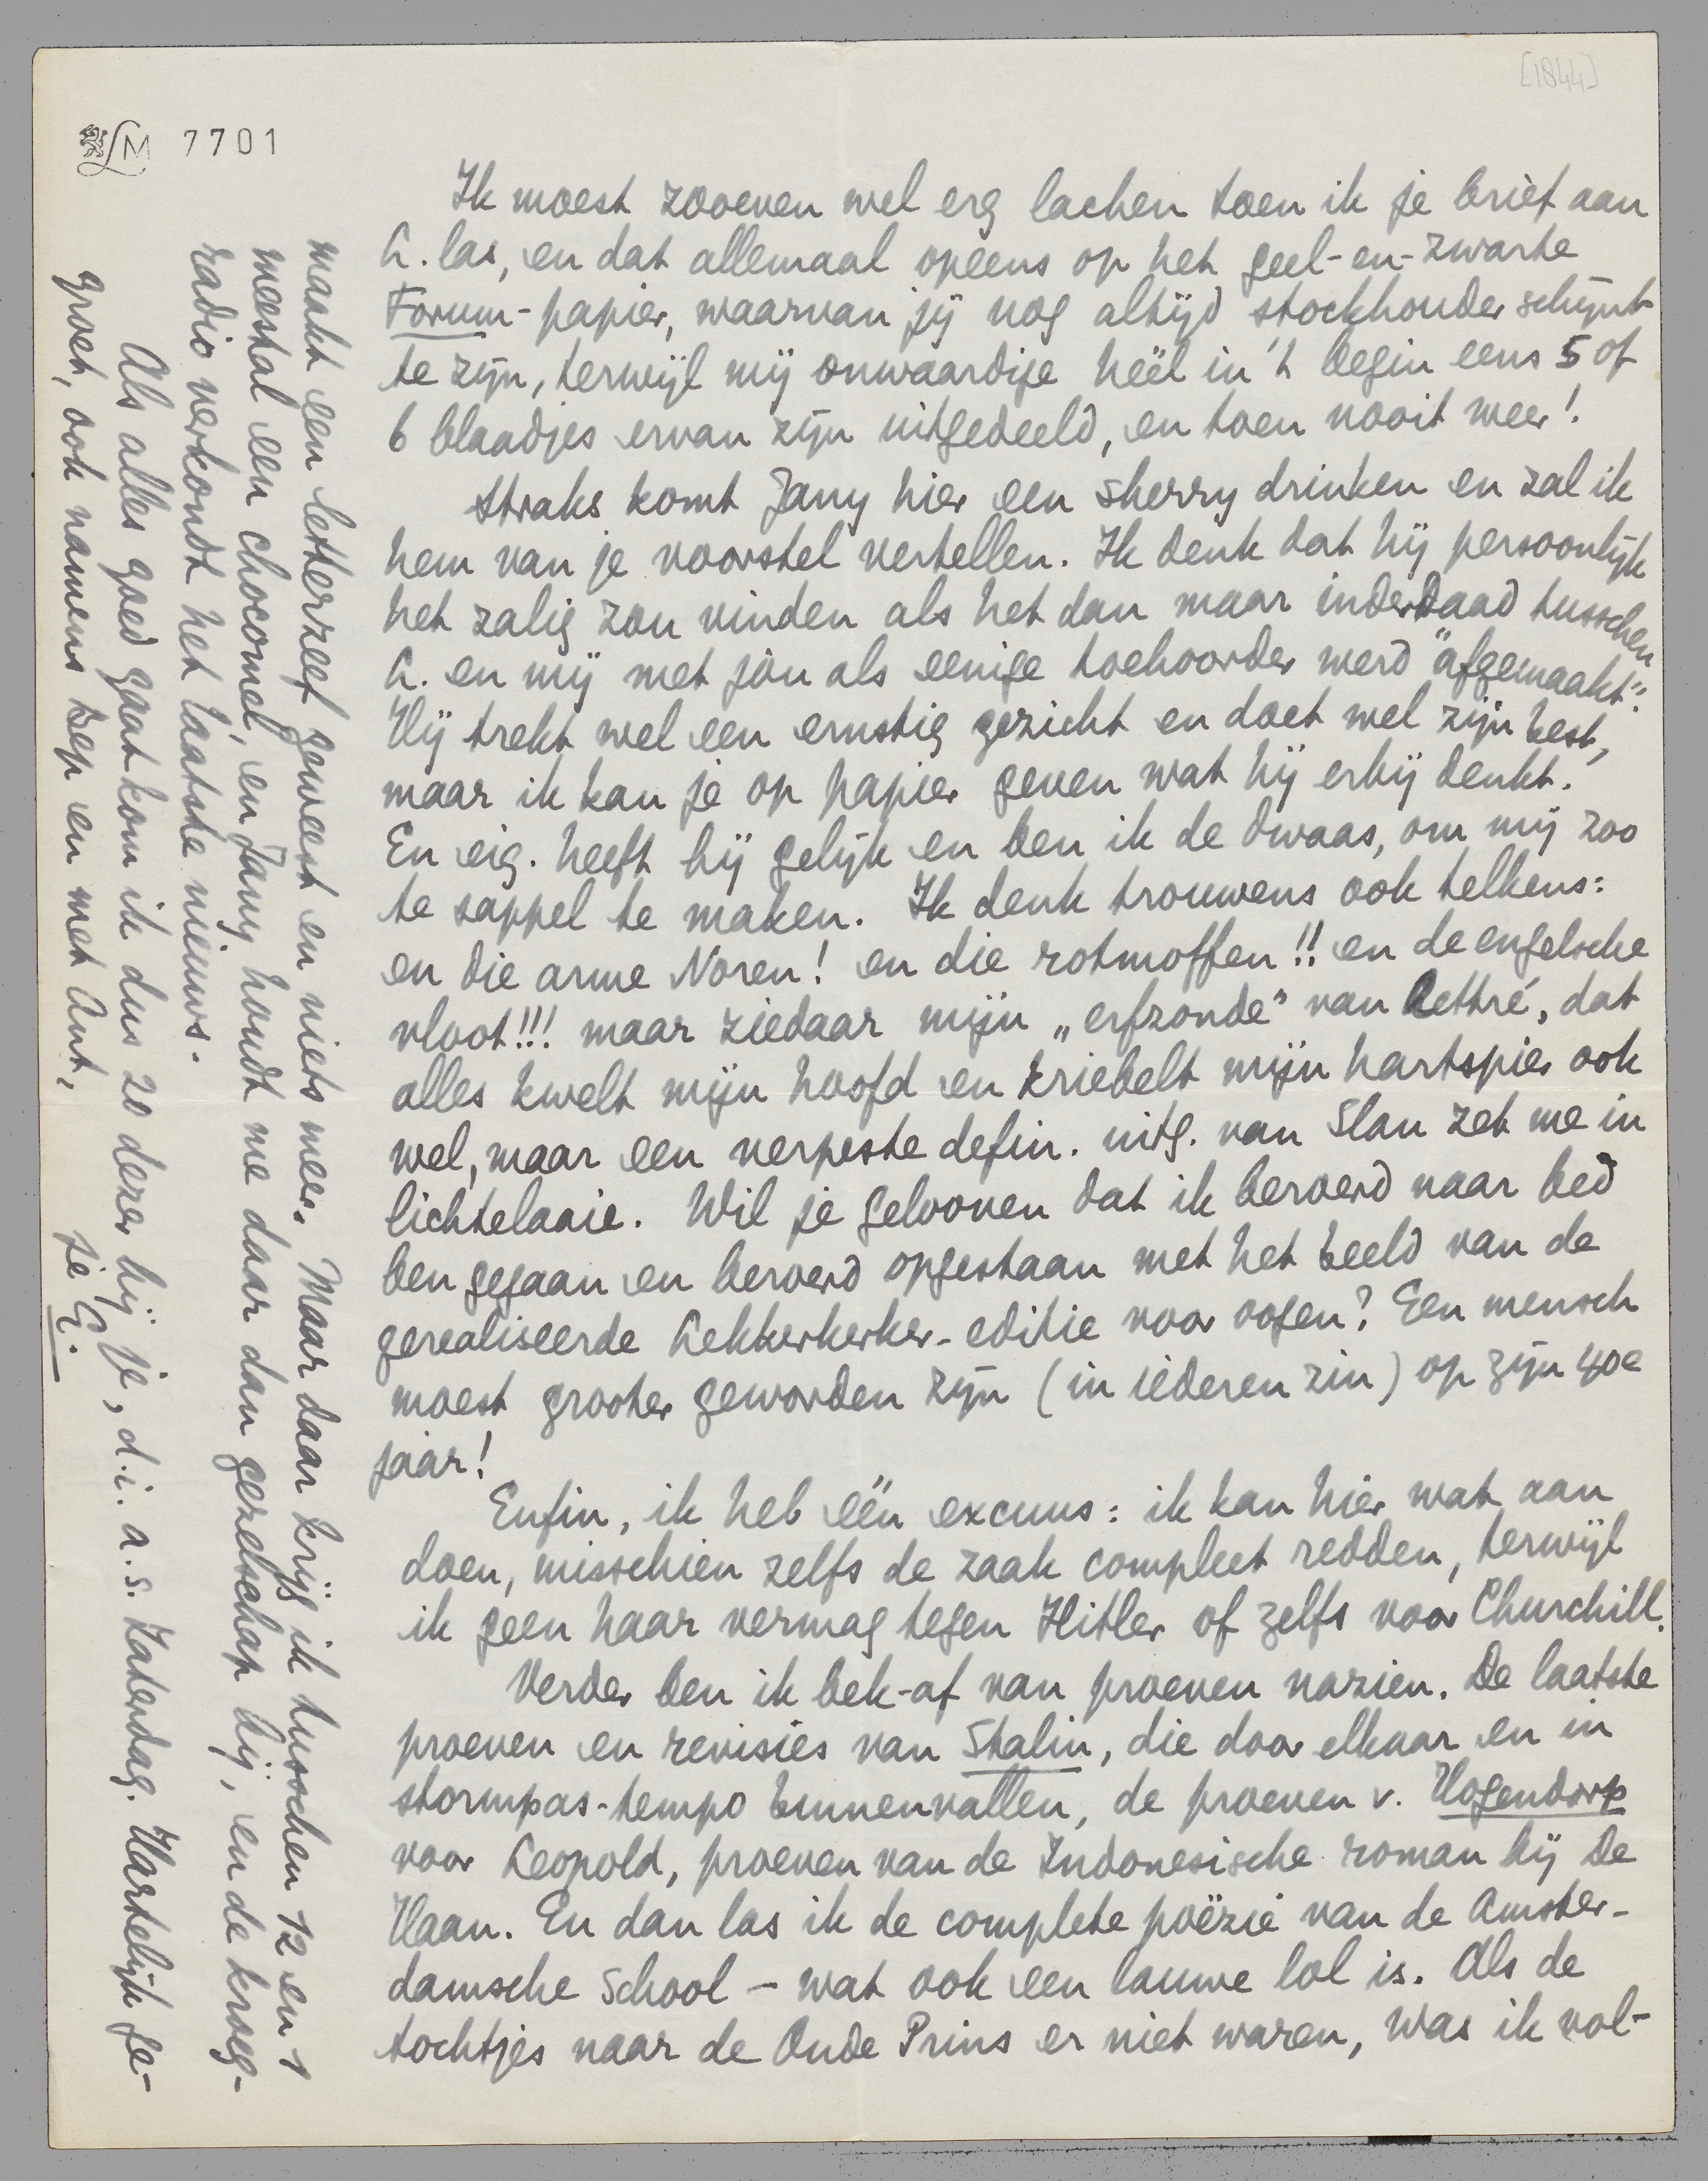 [1844]
LM 7701
Ik moest zooeven wel erg lachen toen ik je brief aan
L. las, en dat allemaal opeens op het geel-en-zwarte
Forum-papier, waarvan jij nog altijd stockhouder schijnt
te zijn, terwijl mij onwaardige héél in 't begin eens 5 of
6 blaadjes ervan zijn uitgedeeld, en toen nooit weer!
Straks komt Jany hier een sherry drinken en zal ik
hem van je voorstel vertellen. Ik denk dat hij persoonlijk
het zalig zou vinden als het dan maar inderdaad tusschen
L. en mij met jòu als eenige toehoorder werd "afgemaakt".
Hij trekt wel een ernstig gezicht en doet wel zijn best,
maar ik kan je op papier geven wat hij erbij denkt.
En eig. heeft hij gelijk en ben ik de dwaas, om mij zoo
te sappel te maken. Ik denk trouwens ook telkens:
en die arme Noren! en die rotmoffen!! en de engelsche
vloot!!! maar ziedaar mijn „erfzonde” van lettré, dat
alles kwelt mijn hoofd en kriebelt mijn hartspier ook
wel, maar een verpeste defin. uitg. van Slau zet me in
lichtelaaie. Wil je gelooven dat ik beroerd naar bed
ben gegaan en beroerd opgestaan met het beeld van de
gerealiseerde Lekkerkerker-editie voor oogen? Een mensch
moest grooter geworden zijn (in iéderen zin) op zijn 40e
jaar!
Enfin, ik heb één excuus: ik kan hier wat aan
doen, misschien zelfs de zaak compleet redden, terwijl
ik geen haar vermag tegen Hitler of zelfs voor Churchill.
Verder ben ik bek-af van proeven nazien. De laatste
proeven en revisies van Stalin, die door elkaar en in
stormpas-tempo binnenvallen, de proeven v. Hogendorp
voor Leopold, proeven van de Indonesische roman bij De
Haan. En dan las ik de complete poëzie van de Amster-
damsche School – wat ook een lauwe lol is. Als de
tochtjes naar de Oude Prins er niet waren, was ik vol-
maakt een letterzeef geweest en niets meer. Maar daar krijg ik tusschen 12 en 1
meestal een chocomel, en Jany houdt me daar dan gezelschap bij, en de kroeg-
radio verkondt het laatste nieuws.
Als alles goed gaat kom ik dus 20 dezer bij je, d.i. a.s. Zaterdag. Hartelijk ge-
groet, ook namens Bep en met Ant,
je E.